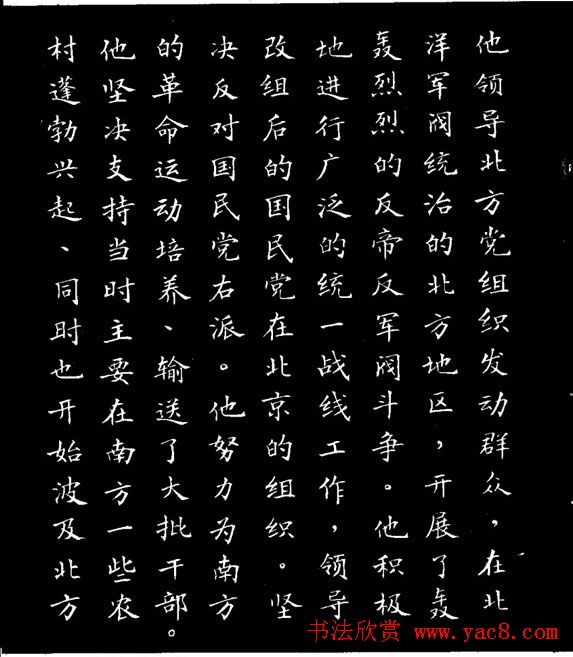 他领导北方党组织发动群众，在北
洋军阀统治的北方地区，开展了轰
轰烈烈的反帝反军阀斗争。他积极
地进行广泛的统一战线工作，领导
改组后的国民党在北京的组织。坚
决反对国民党右派。他努力为南方
的革命运动培养、输送了大批干部。
他坚决支持当时主要在南方一些农
村蓬勃兴起、同时也开始波及北方
书法欣赏 www.yac8.com